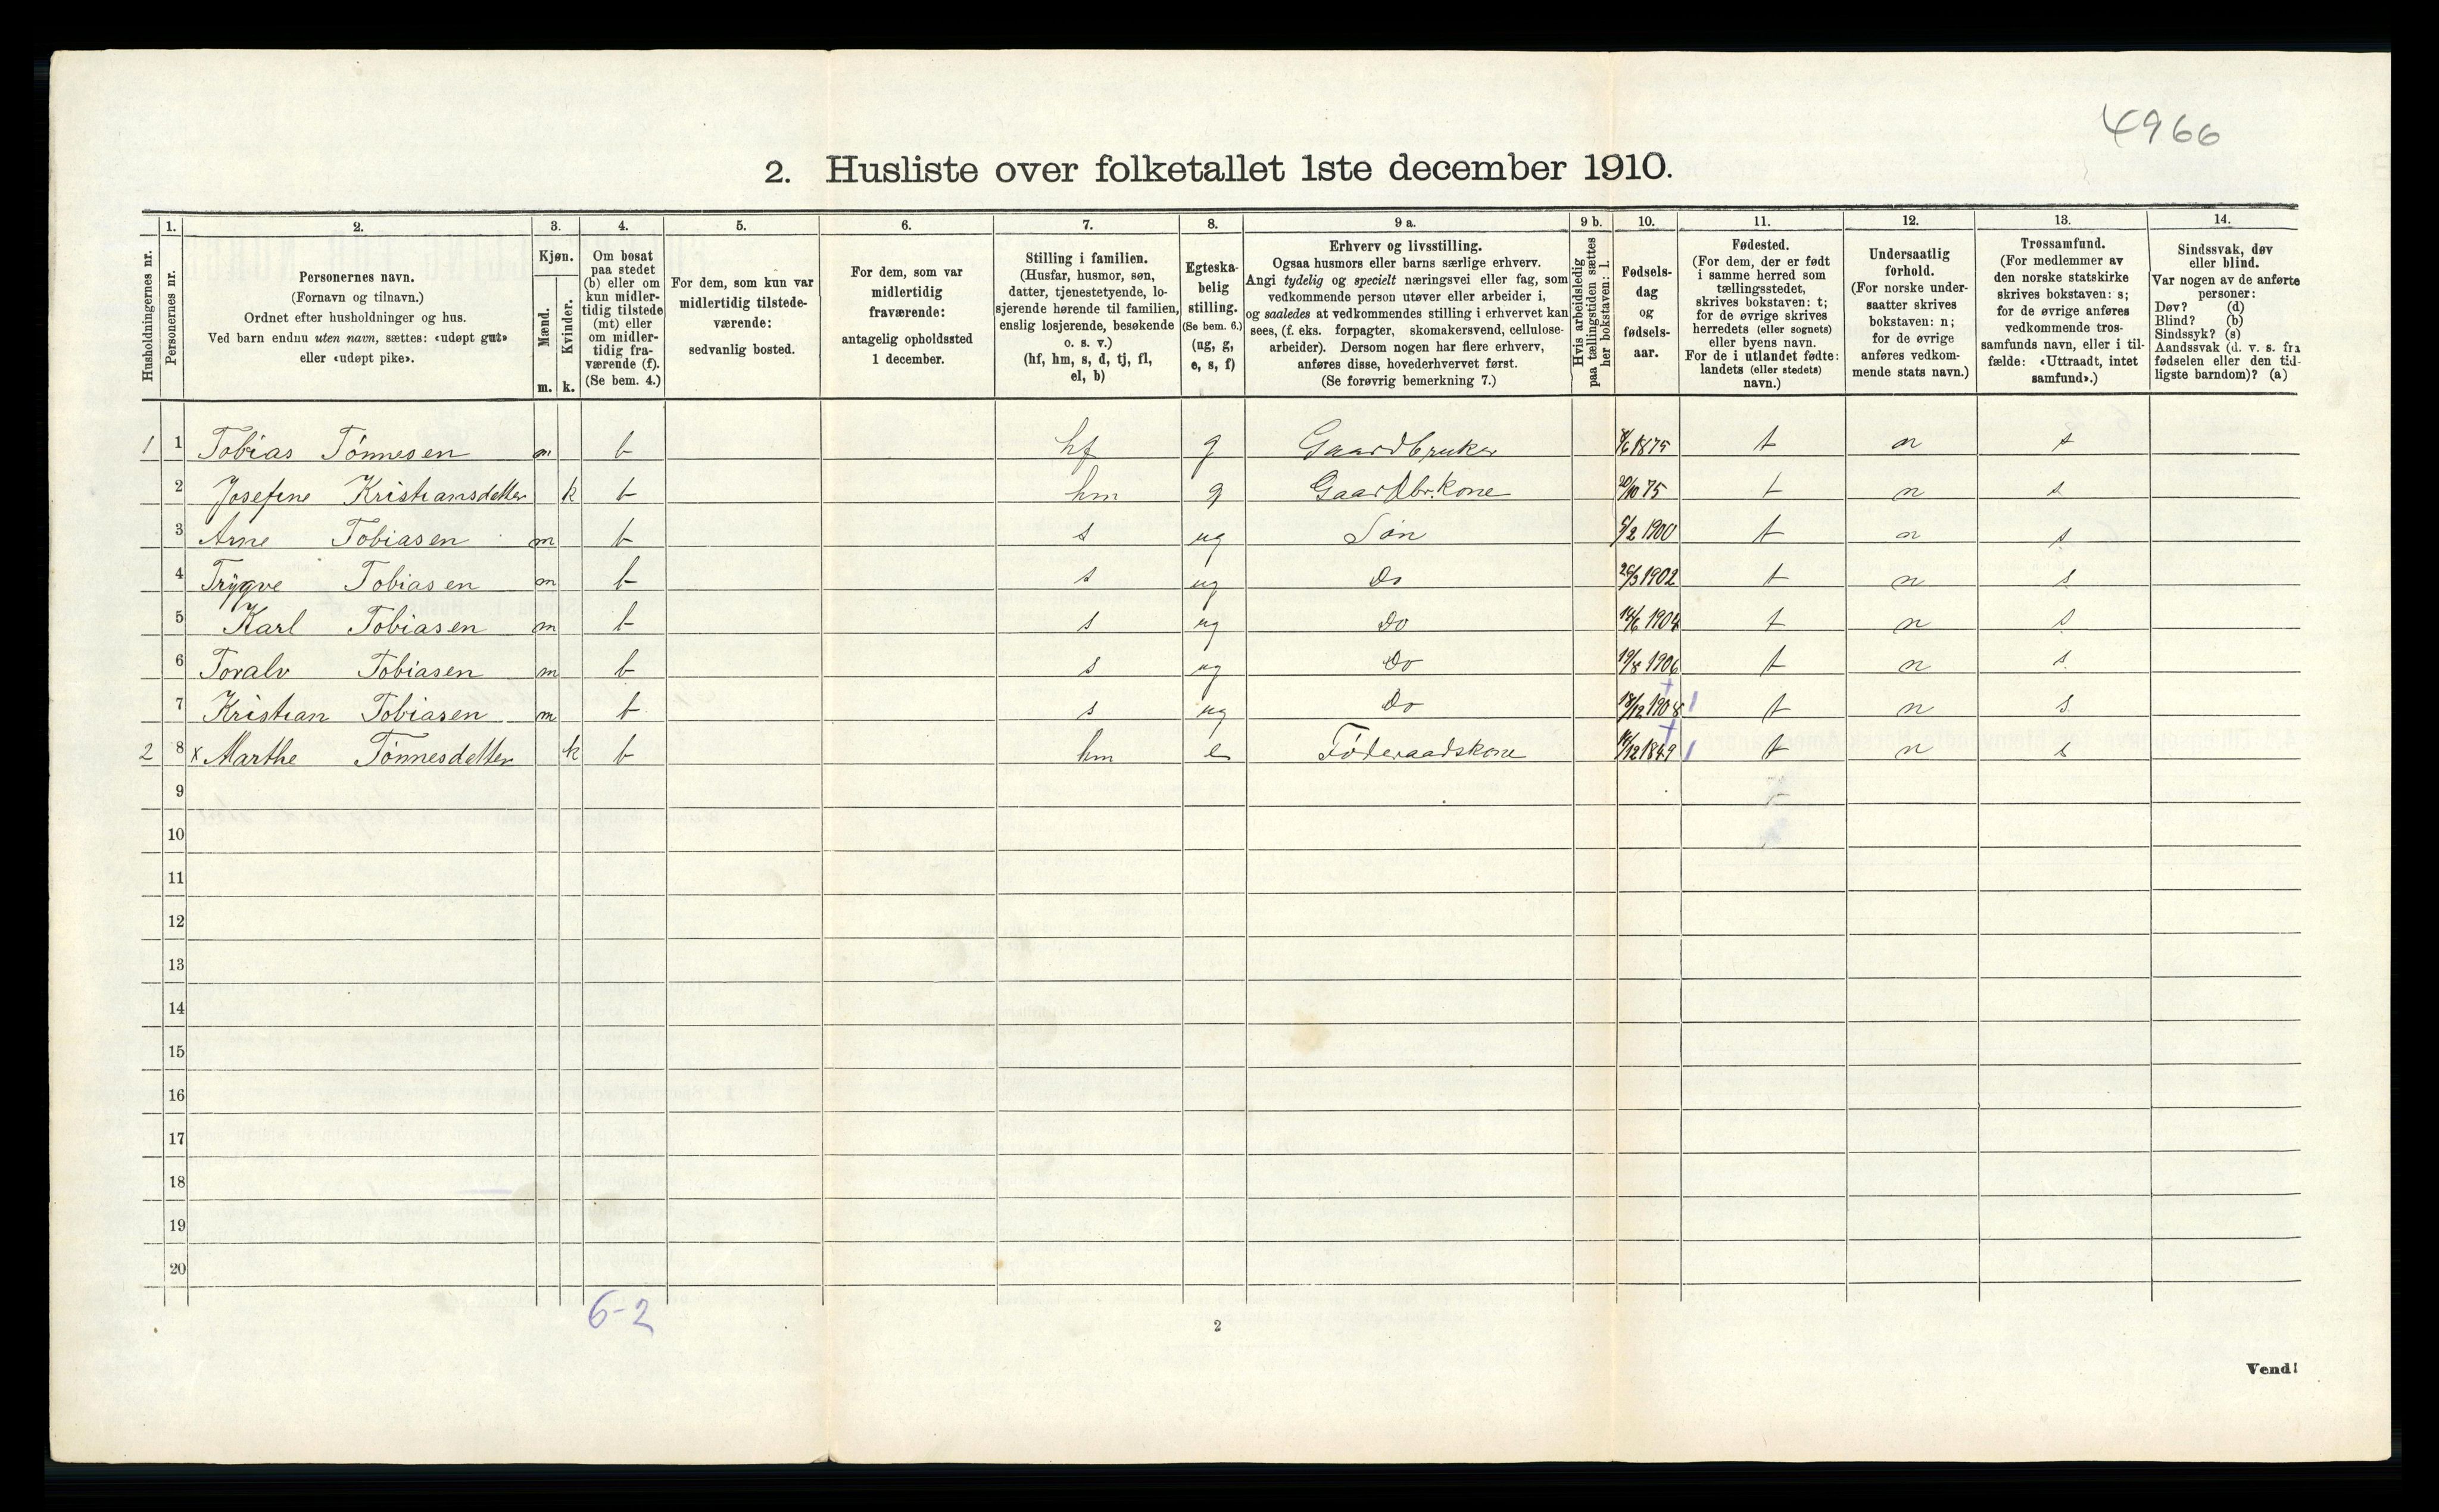 4966
2. Husliste over folketallet 1ste december 1910.
Husholdningernes nr.
1. Personernes nr.
2. Personernes navn. (Fornavn og tilnavn.) Ordnet efter husholdninger og hus. Ved barn endnu uten navn, sættes: «udøpt gut» eller «udøpt pike».
3. Kjøn. Mænd. m. Kvinder. k.
4. Om bosat paa stedet (b) eller om kun midler-tidig tilstede (mt) eller om midler-tidig fra-værende (f). (Se bem. 4.)
5. For dem, som kun var midlertidig tilstede-værende: sedvanlig bosted.
6. For dem, som var midlertidig fraværende: antagelig opholdssted 1 december.
7. Stilling i familien. (Husfar, husmor, søn, datter, tjenestetyende, lo-sjerende hørende til familien, enslig losjerende, besøkende o. s. v.) (hf, hm, s, d, tj, fl, el, b)
8. Egteska-belig stilling. (Se bem. 6.) (ug, g, e, s, f)
9 a. Erhverv og livsstilling. Ogsaa husmors eller barns særlige erhverv. Angi tydelig og specielt næringsvei eller fag, som vedkommende person utøver eller arbeider i, og saaledes at vedkommendes stilling i erhvervet kan sees, (f. eks. forpagter, skomakersvend, cellulose-arbeider). Dersom nogen har flere erhverv, anføres disse, hovederhvervet først. (Se forøvrig bemerkning 7.)
9 b. Hvis arbeidsledig paa tællingstiden sættes her bokstaven: l.
10. Fødsels-dag og fødsels-aar.
11. Fødested. (For dem, der er født i samme herred som tællingsstedet, skrives bokstaven: t; for de øvrige skrives herredets (eller sognets) eller byens navn. For de i utlandet fødte: landets (eller stedets) navn.)
12. Undersaatlig forhold. (For norske under-saatter skrives bokstaven: n; for de øvrige anføres vedkom-mende stats navn.)
13. Trossamfund. (For medlemmer av den norske statskirke skrives bokstaven: s; for de øvrige anføres vedkommende tros-samfunds navn, eller i til-fælde: «Uttraadt, intet samfund».)
14. Sindssvak, døv eller blind. Var nogen av de anførte personer: Døv? (d) Blind? (b) Sindssyk? (s) Aandssvak (d. v. s. fra fødselen eller den tid-ligste barndom)? (a)
1 1 Tobias Tønnesen m b hf g Gaardbruker 1875 t n s
2 Josefine Kristiansdatter k b hm g Gaardbr.kone 20/10 75 t n s
3 Arne Tobiasen m b s ug Søn 5/2 1900 t n s
4 Trygve Tobiasen m b s ug Do 1902 t n s
5 Karl Tobiasen m b s ug Do 14/6 1904 t n s
6 Toralv Tobiasen m b s ug Do 19/8 1906 t n s
7 Kristian Tobiasen m b s ug Do 18/12 1908 t n s
2 8 x Marthe Tønnesdatter k b hm e Føderaadskone 14/12 1849 t n s
9
10
11
12
13
14
15
16
17
18
19
20
6-2
2
Vend!